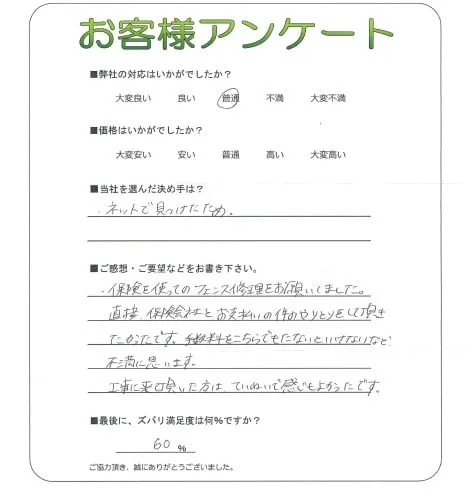 お客様アンケート
■弊社の対応はいかがでしたか？
大変良い 良い 普通 不満 大変不満
■価格はいかがでしたか？
大変安い 安い 普通 高い 大変高い
■当社を選んだ決め手は？
・ネットで見つけたため。
■ご感想・ご要望などをお書き下さい。
・保険を使ってのフェンス修理をお願いしました。
直接、保険会社とお支払いの件のやりとりをして頂き
たかったです。手数料をこちらでもたないといけないなど
不満に思います。
工事に来て頂いた方は、ていねいで感じもよかったです。
■最後に、ズバリ満足度は何%ですか？
60 %
ご協力頂き、誠にありがとうございました。